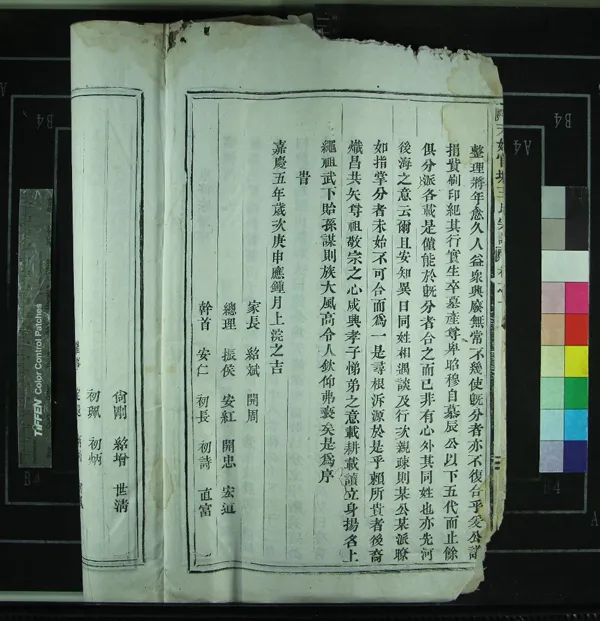 整理將年愈久人益衆興廢無常不幾使旣分者亦不復合乎爰公諸
捐貲刷印紀其行實生卒墓產尊卑昭穆自慕辰公以下五代而止餘
俱分派各載是僃能於旣分者合之而已非有心外其同姓也亦先河
後海之意云爾且安知異日同姓相遇談及行次親疎則某公某派瞭
如指掌分者未始不可合而為一是尋根泝源於是乎賴所貴者後裔
熾昌共矢尊祖敬宗之心咸興孝子悌弟之意載耕載讀立身揚名上
繩祖武下貽孫謀則族大風高令人欽仰弗衰矣是為序
旹
嘉慶五年歲次庚申應鍾月上浣之吉
家長 紹斌 開周
總理 振侯 安紅 開忠 宏道
幹首 安仁 初長 初詩 直富
尙剛 紹增 世清
初珮 初炳
TIFFEN Color Control Patches
A
B4
A4
B4
A